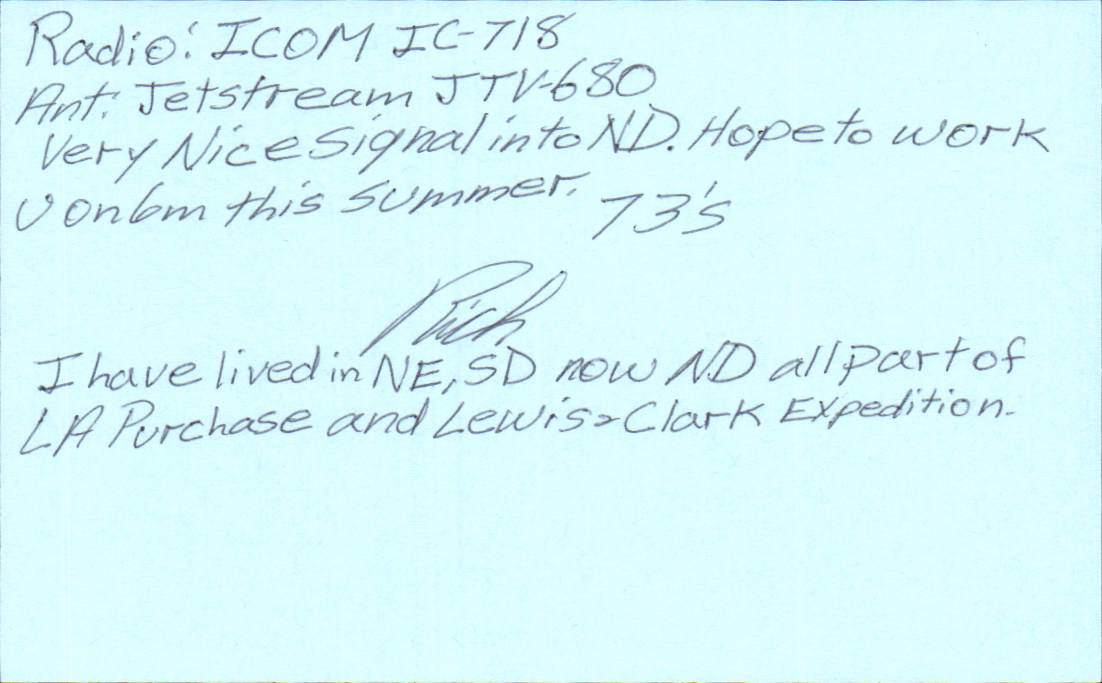 Radio: ICOM IC-718
Ant: Jetstream JTV-680
Very Nice Signal into ND. Hope to work
U on 6m this summer. 73's
Rich
I have lived in NE, SD now ND all part of
LA Purchase and Lewis & Clark Expedition.